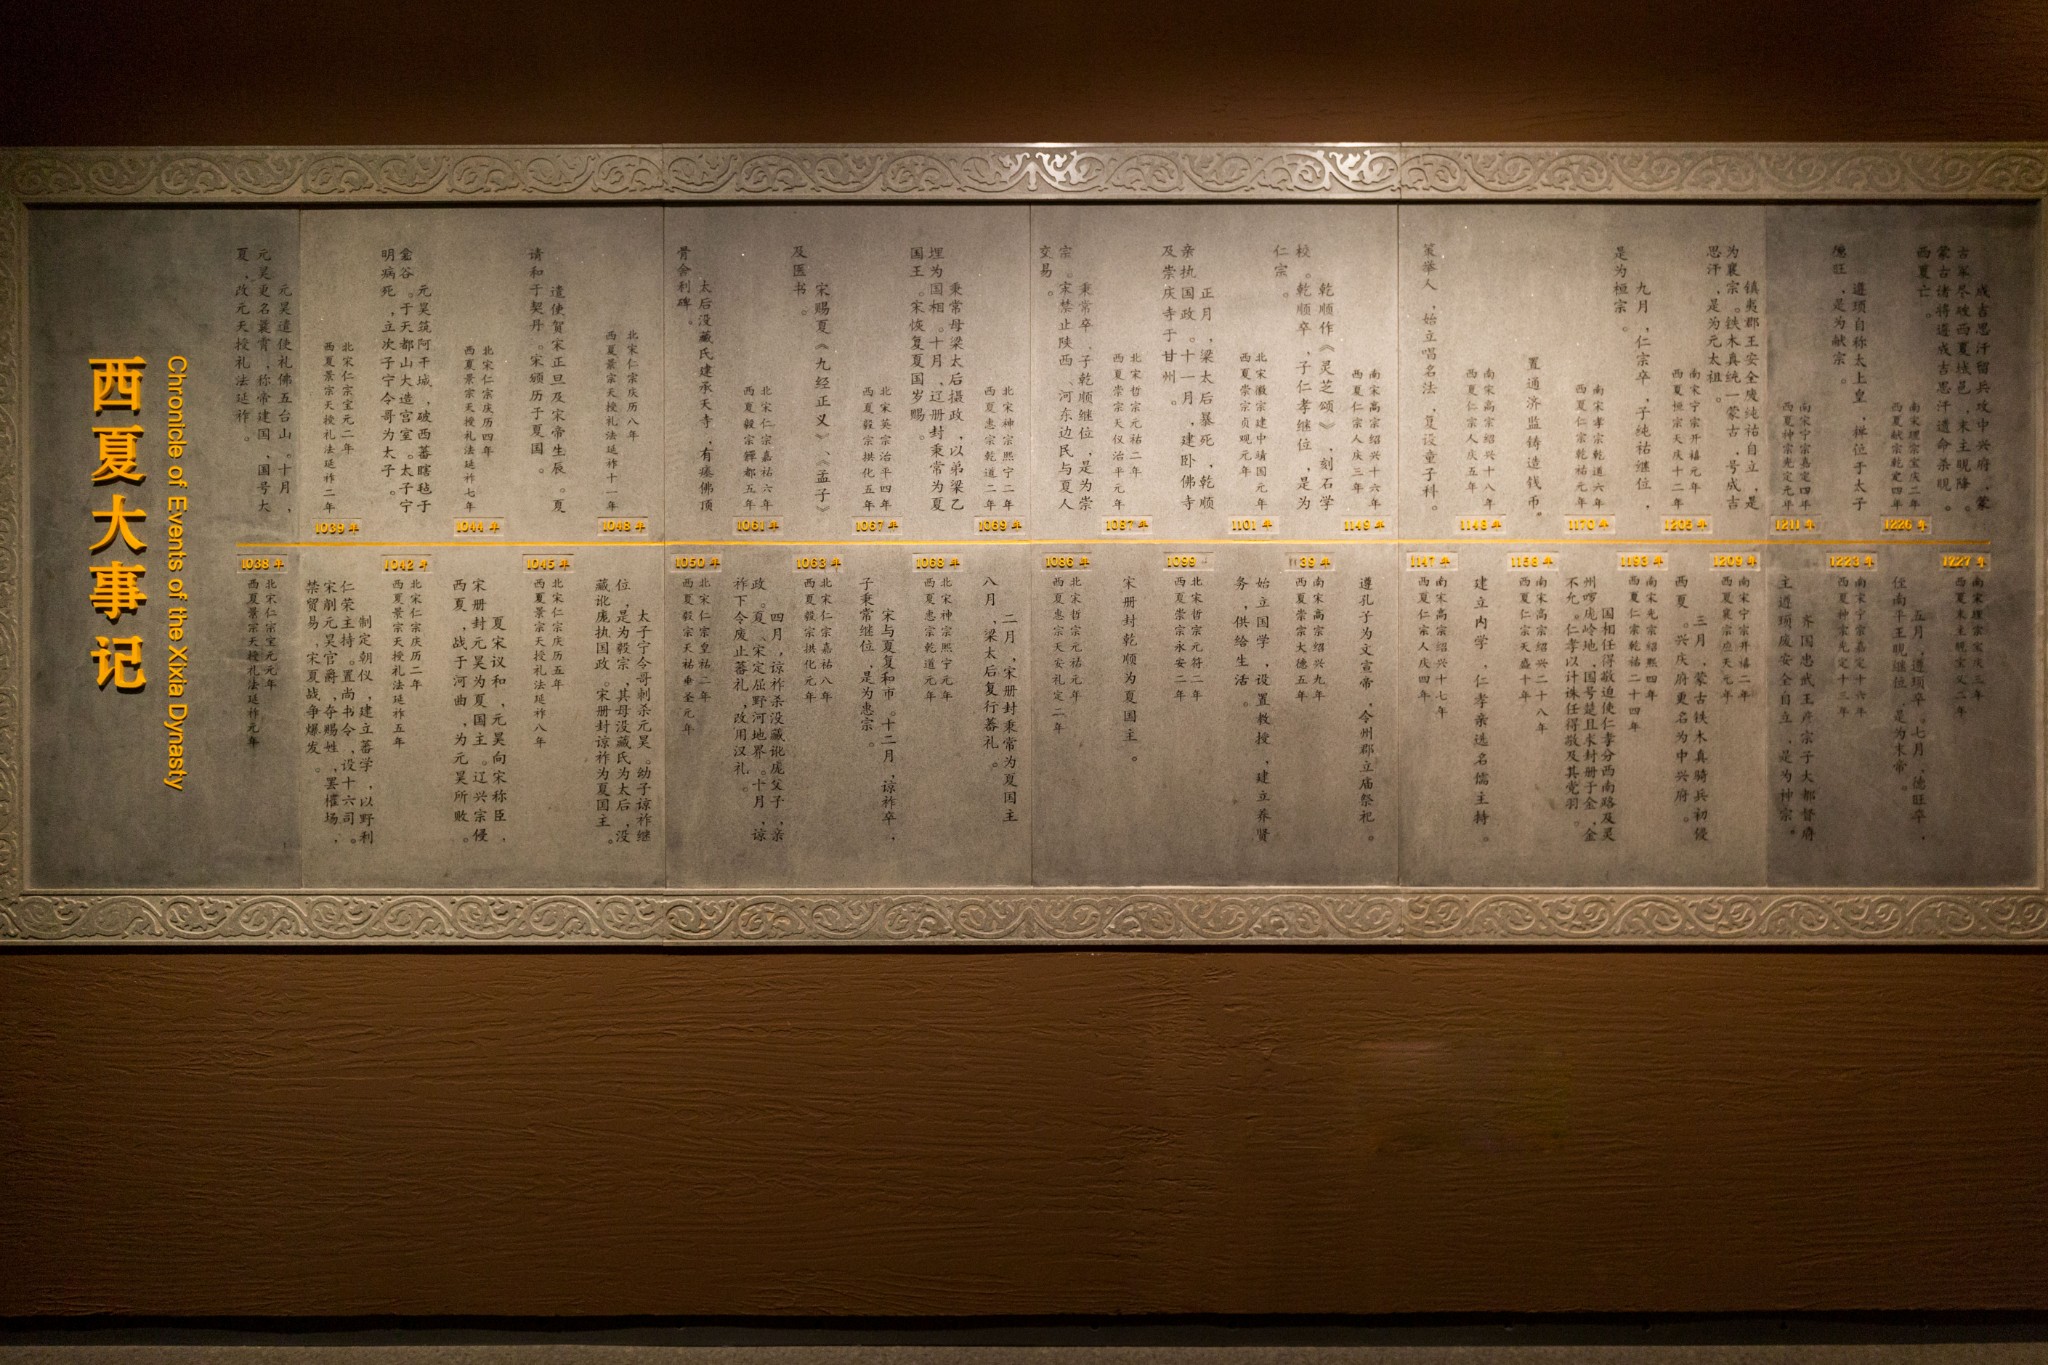 西夏大事记
Chronicle of Events of the Xixia Dynasty
1038 年
北宋仁宗宝元元年
西夏景宗天授礼法延祚元年
元昊遣使礼佛五台山。十月，
元昊更名曩霄，称帝建国，国号大
夏，改元天授礼法延祚。
1039 年
北宋仁宗宝元二年
西夏景宗天授礼法延祚二年
制定朝仪，建立蕃学，以野利
仁荣主持。置尚书令，设十六司。
宋削元昊官爵，夺赐姓，罢榷场，
禁贸易，宋夏战争爆发。
1042 年
北宋仁宗庆历二年
西夏景宗天授礼法延祚五年
元昊筑阿干城，破西蕃瞎毡于
龛谷。于天都山大造宫室。太子宁
明病死，立次子宁令哥为太子。
1044 年
北宋仁宗庆历四年
西夏景宗天授礼法延祚七年
夏宋议和，元昊向宋称臣，
宋册封元昊为夏国主。辽兴宗侵
西夏，战于河曲，为元昊所败。
1045 年
北宋仁宗庆历五年
西夏景宗天授礼法延祚八年
遣使贺宋正旦及宋帝生辰。夏
请和于契丹。宋颁历于夏国。
1048 年
北宋仁宗庆历八年
西夏景宗天授礼法延祚十一年
太子宁令哥刺杀元昊。幼子谅祚继
位，是为毅宗，其母没藏氏为太后，没
藏讹庞执国政。宋册封谅祚为夏国主。
1050 年
北宋仁宗皇祐二年
西夏毅宗天祐垂圣元年
太后没藏氏建承天寺，有瘗佛顶
骨舍利碑。
1061 年
北宋仁宗嘉祐六年
西夏毅宗奲都五年
四月，谅祚杀没藏讹庞父子，亲
政。夏、宋定屈野河地界。十月，谅
祚下令废止蕃礼，改用汉礼。
1063 年
北宋仁宗嘉祐八年
西夏毅宗拱化元年
宋赐夏《九经正义》、《孟子》
及医书。
1067 年
北宋英宗治平四年
西夏毅宗拱化五年
宋与夏复和市。十二月，谅祚卒，
子秉常继位，是为惠宗。
1068 年
北宋神宗熙宁元年
西夏惠宗乾道元年
秉常母梁太后摄政，以弟梁乙
埋为国相。十月，辽册封秉常为夏
国王。宋恢复夏国岁赐。
1069 年
北宋神宗熙宁二年
西夏惠宗乾道二年
二月，宋册封秉常为夏国主
八月，梁太后复行蕃礼。
1086 年
北宋哲宗元祐元年
西夏惠宗天安礼定二年
秉常卒，子乾顺继位，是为崇
宗。宋禁止陕西、河东边民与夏人
交易。
1087 年
北宋哲宗元祐二年
西夏崇宗天仪治平元年
宋册封乾顺为夏国主。
1099 年
北宋哲宗元符二年
西夏崇宗永安二年
正月，梁太后暴死，乾顺
亲执国政。十一月，建卧佛寺
及崇庆寺于甘州。
1101 年
北宋徽宗建中靖国元年
西夏崇宗贞观元年
始立国学，设置教授，建立养贤
务，供给生活。
1139 年
南宋高宗绍兴九年
西夏崇宗大德五年
乾顺作《灵芝颂》，刻石学
校。乾顺卒，子仁孝继位，是为
仁宗。
1146 年
南宋高宗绍兴十六年
西夏仁宗人庆三年
遵孔子为文宣帝，令州郡立庙祭祀。
1147 年
南宋高宗绍兴十七年
西夏仁宗人庆四年
策举人，始立唱名法，复设童子科。
1148 年
南宋高宗绍兴十八年
西夏仁宗人庆五年
建立内学，仁孝亲选名儒主持。
1158 年
南宋高宗绍兴二十八年
西夏仁宗天盛十年
置通济监铸造钱币。
1170 年
南宋孝宗乾道六年
西夏仁宗乾祐元年
国相任得敬迫使仁孝分西南路及灵
州啰庞岭地，国号楚且求封册于金，金
不允。仁孝以计诛任得敬及其党羽。
1193 年
南宋光宗绍熙四年
西夏仁宗乾祐二十四年
九月，仁宗卒，子纯祐继位，
是为桓宗。
1205 年
南宋宁宗开禧元年
西夏桓宗天庆十二年
三月，蒙古铁木真骑兵初侵
西夏。兴庆府更名为中兴府。
1209 年
南宋宁宗开禧二年
西夏襄宗应天元年
镇夷郡王安全废纯祐自立，是
为襄宗。铁木真统一蒙古，号成吉
思汗，是为元太祖。
1211 年
南宋宁宗嘉定四年
西夏神宗光定元年
齐国忠武王彦宗子大都督府
主遵顼废安全自立，是为神宗。
1223 年
南宋宁宗嘉定十六年
西夏神宗光定十三年
遵顼自称太上皇，禅位于太子
德旺，是为献宗。
1226 年
南宋理宗宝庆二年
西夏献宗乾定四年
五月，遵顼卒。七月，德旺卒，
侄南平王睍继位，是为末帝。
1227 年
南宋理宗宝庆三年
西夏末主睍宝义二年
成吉思汗留兵攻中兴府，蒙
古军尽攻西夏城邑，末主睍降。
蒙古诸将遵成吉思汗遗命杀睍。
西夏亡。